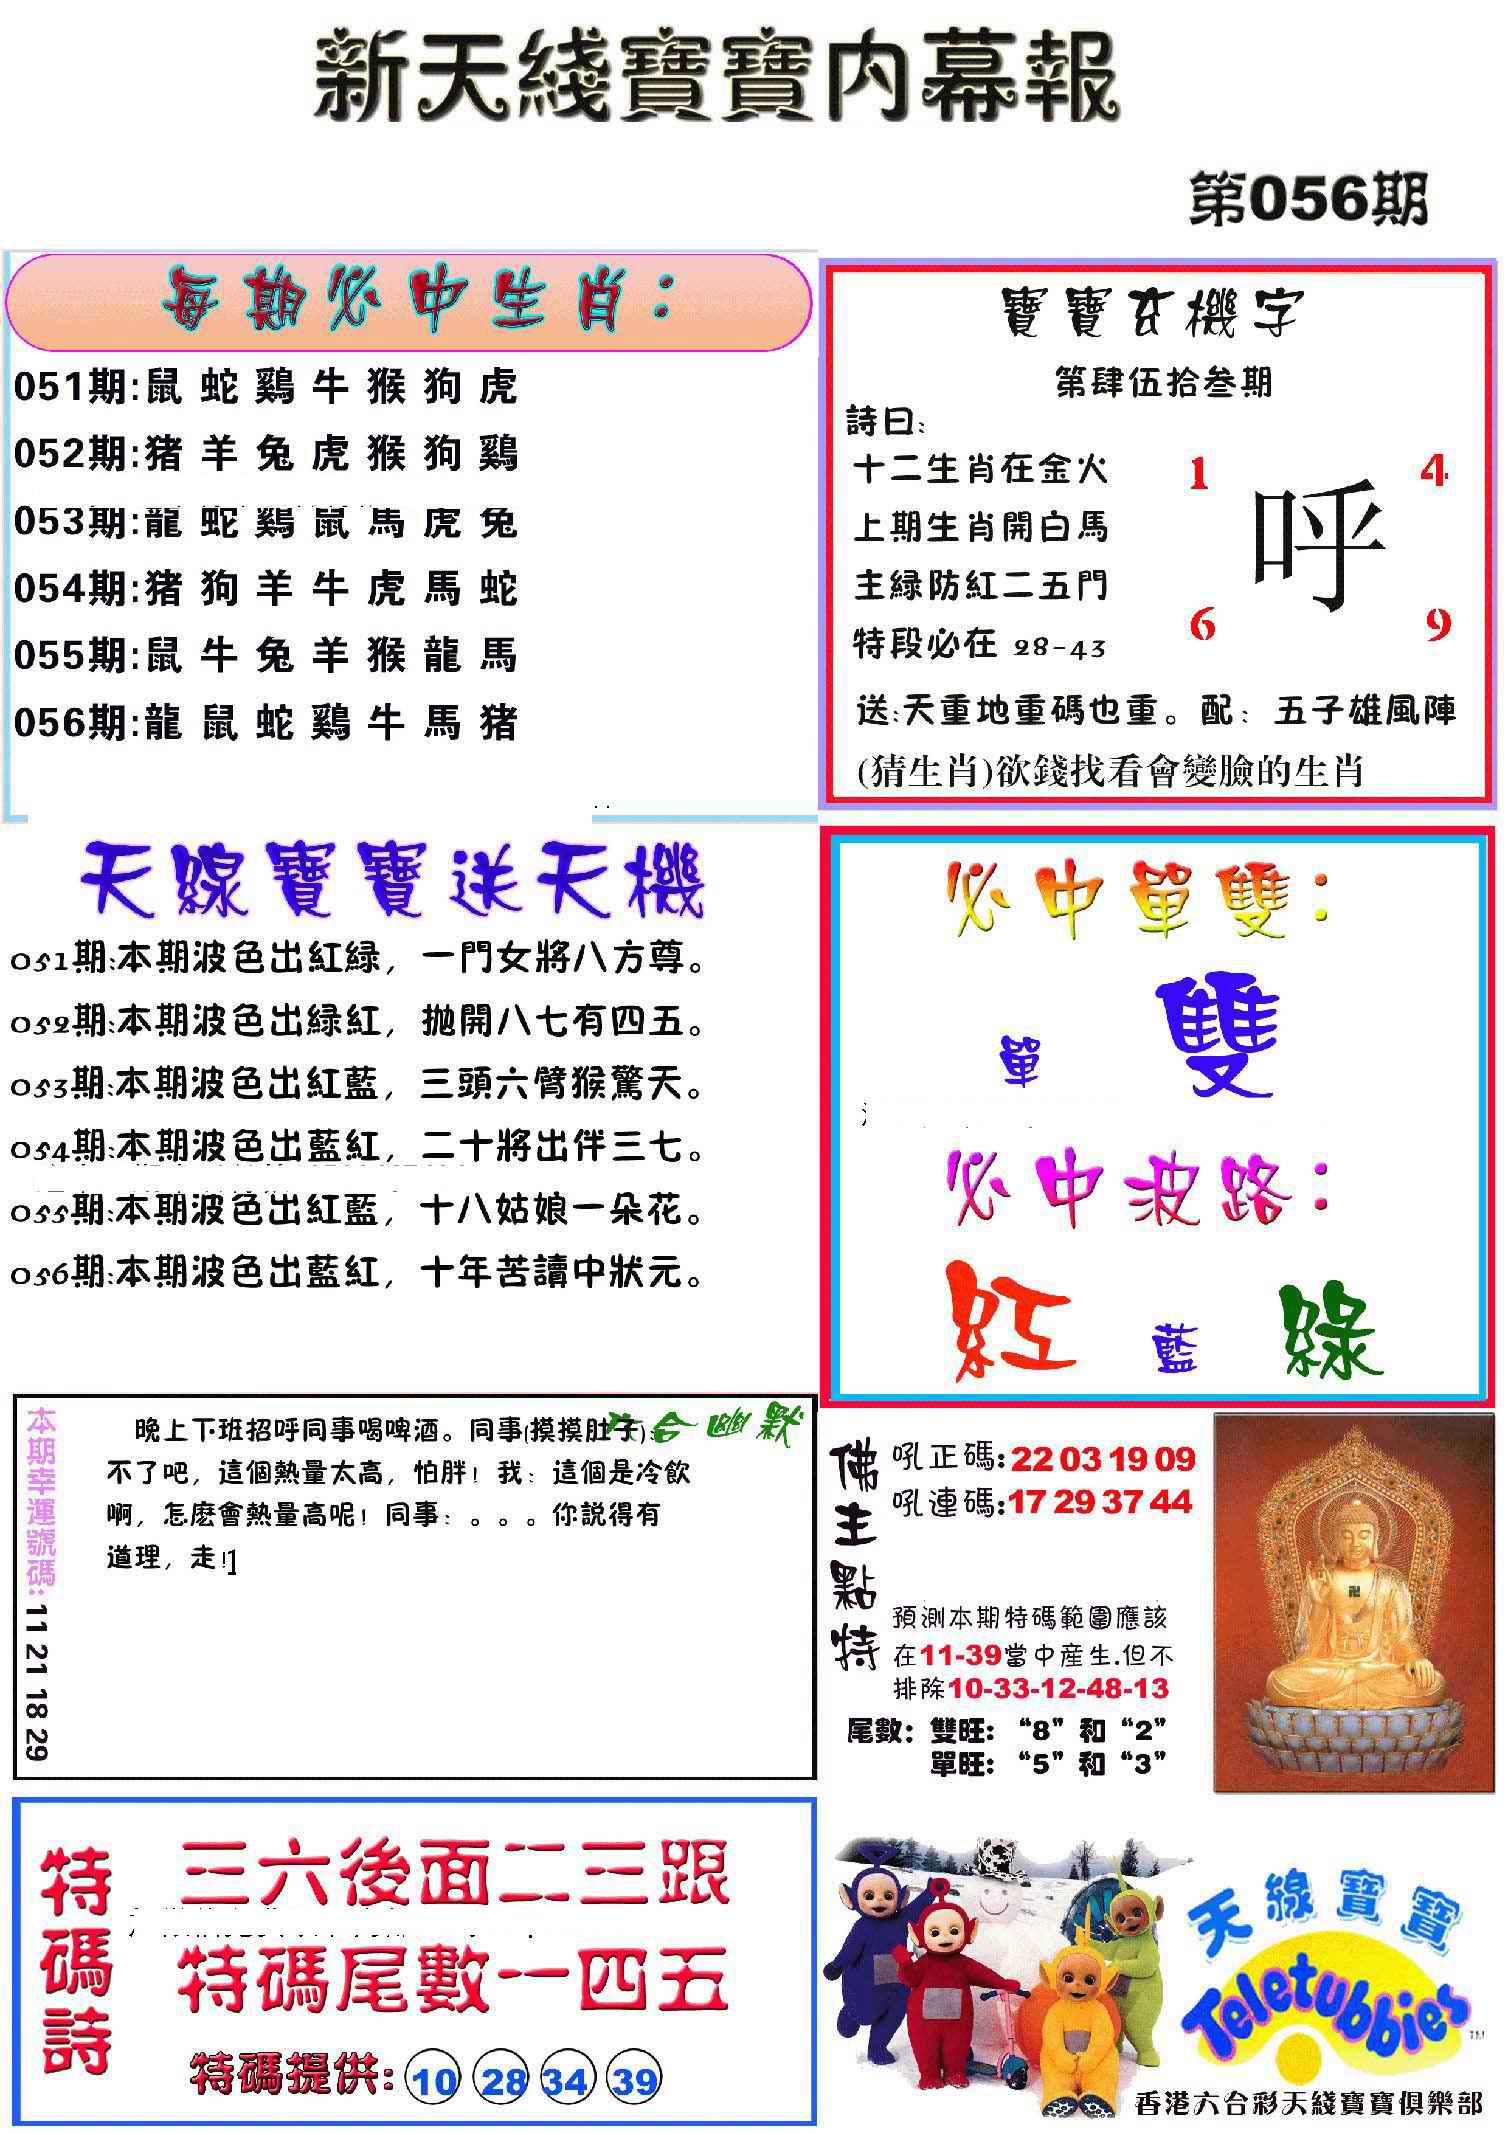 新天綫寶寶内幕報
第056期
每期必中生肖：
051期:鼠 蛇 鷄 牛 猴 狗 虎
052期:猪 羊 兔 虎 猴 狗 鷄
053期:龍 蛇 鷄 鼠 馬 虎 兔
054期:猪 狗 羊 牛 虎 馬 蛇
055期:鼠 牛 兔 羊 猴 龍 馬
056期:龍 鼠 蛇 鷄 牛 馬 猪
寶寶玄機字
第肆伍拾叁期
詩曰:
十二生肖在金火
上期生肖開白馬
主緑防紅二五門
特段必在 28-43
1 4
呼
6 9
送:天重地重碼也重。配：五子雄風陣
(猜生肖)欲錢找看會變臉的生肖
天線寶寶送天機
051期:本期波色出紅緑，一門女將八方尊。
052期:本期波色出緑紅，拋開八七有四五。
053期:本期波色出紅藍，三頭六臂猴驚天。
054期:本期波色出藍紅，二十將出伴三七。
055期:本期波色出紅藍，十八姑娘一朵花。
056期:本期波色出藍紅，十年苦讀中狀元。
必中單雙：
單 雙
必中波路：
紅 藍 綠
本期幸運號碼: 11 21 18 29
六合幽默
晚上下班招呼同事喝啤酒。同事(摸摸肚子):
不了吧，這個熱量太高，怕胖！我：這個是冷飲
啊，怎麽會熱量高呢！同事：。。。你説得有
道理，走!1
佛主點特
吼正碼:22 03 19 09
吼連碼:17 29 37 44
預測本期特碼範圍應該
在11-39當中産生.但不
排除10-33-12-48-13
尾數：雙旺：“8”和“2”
單旺：“5”和“3”
特碼詩
三六後面二三跟
特碼尾數一四五
特碼提供: 10 28 34 39
天線寶寶
Teletubbies TM
香港六合彩天綫寶寶俱樂部